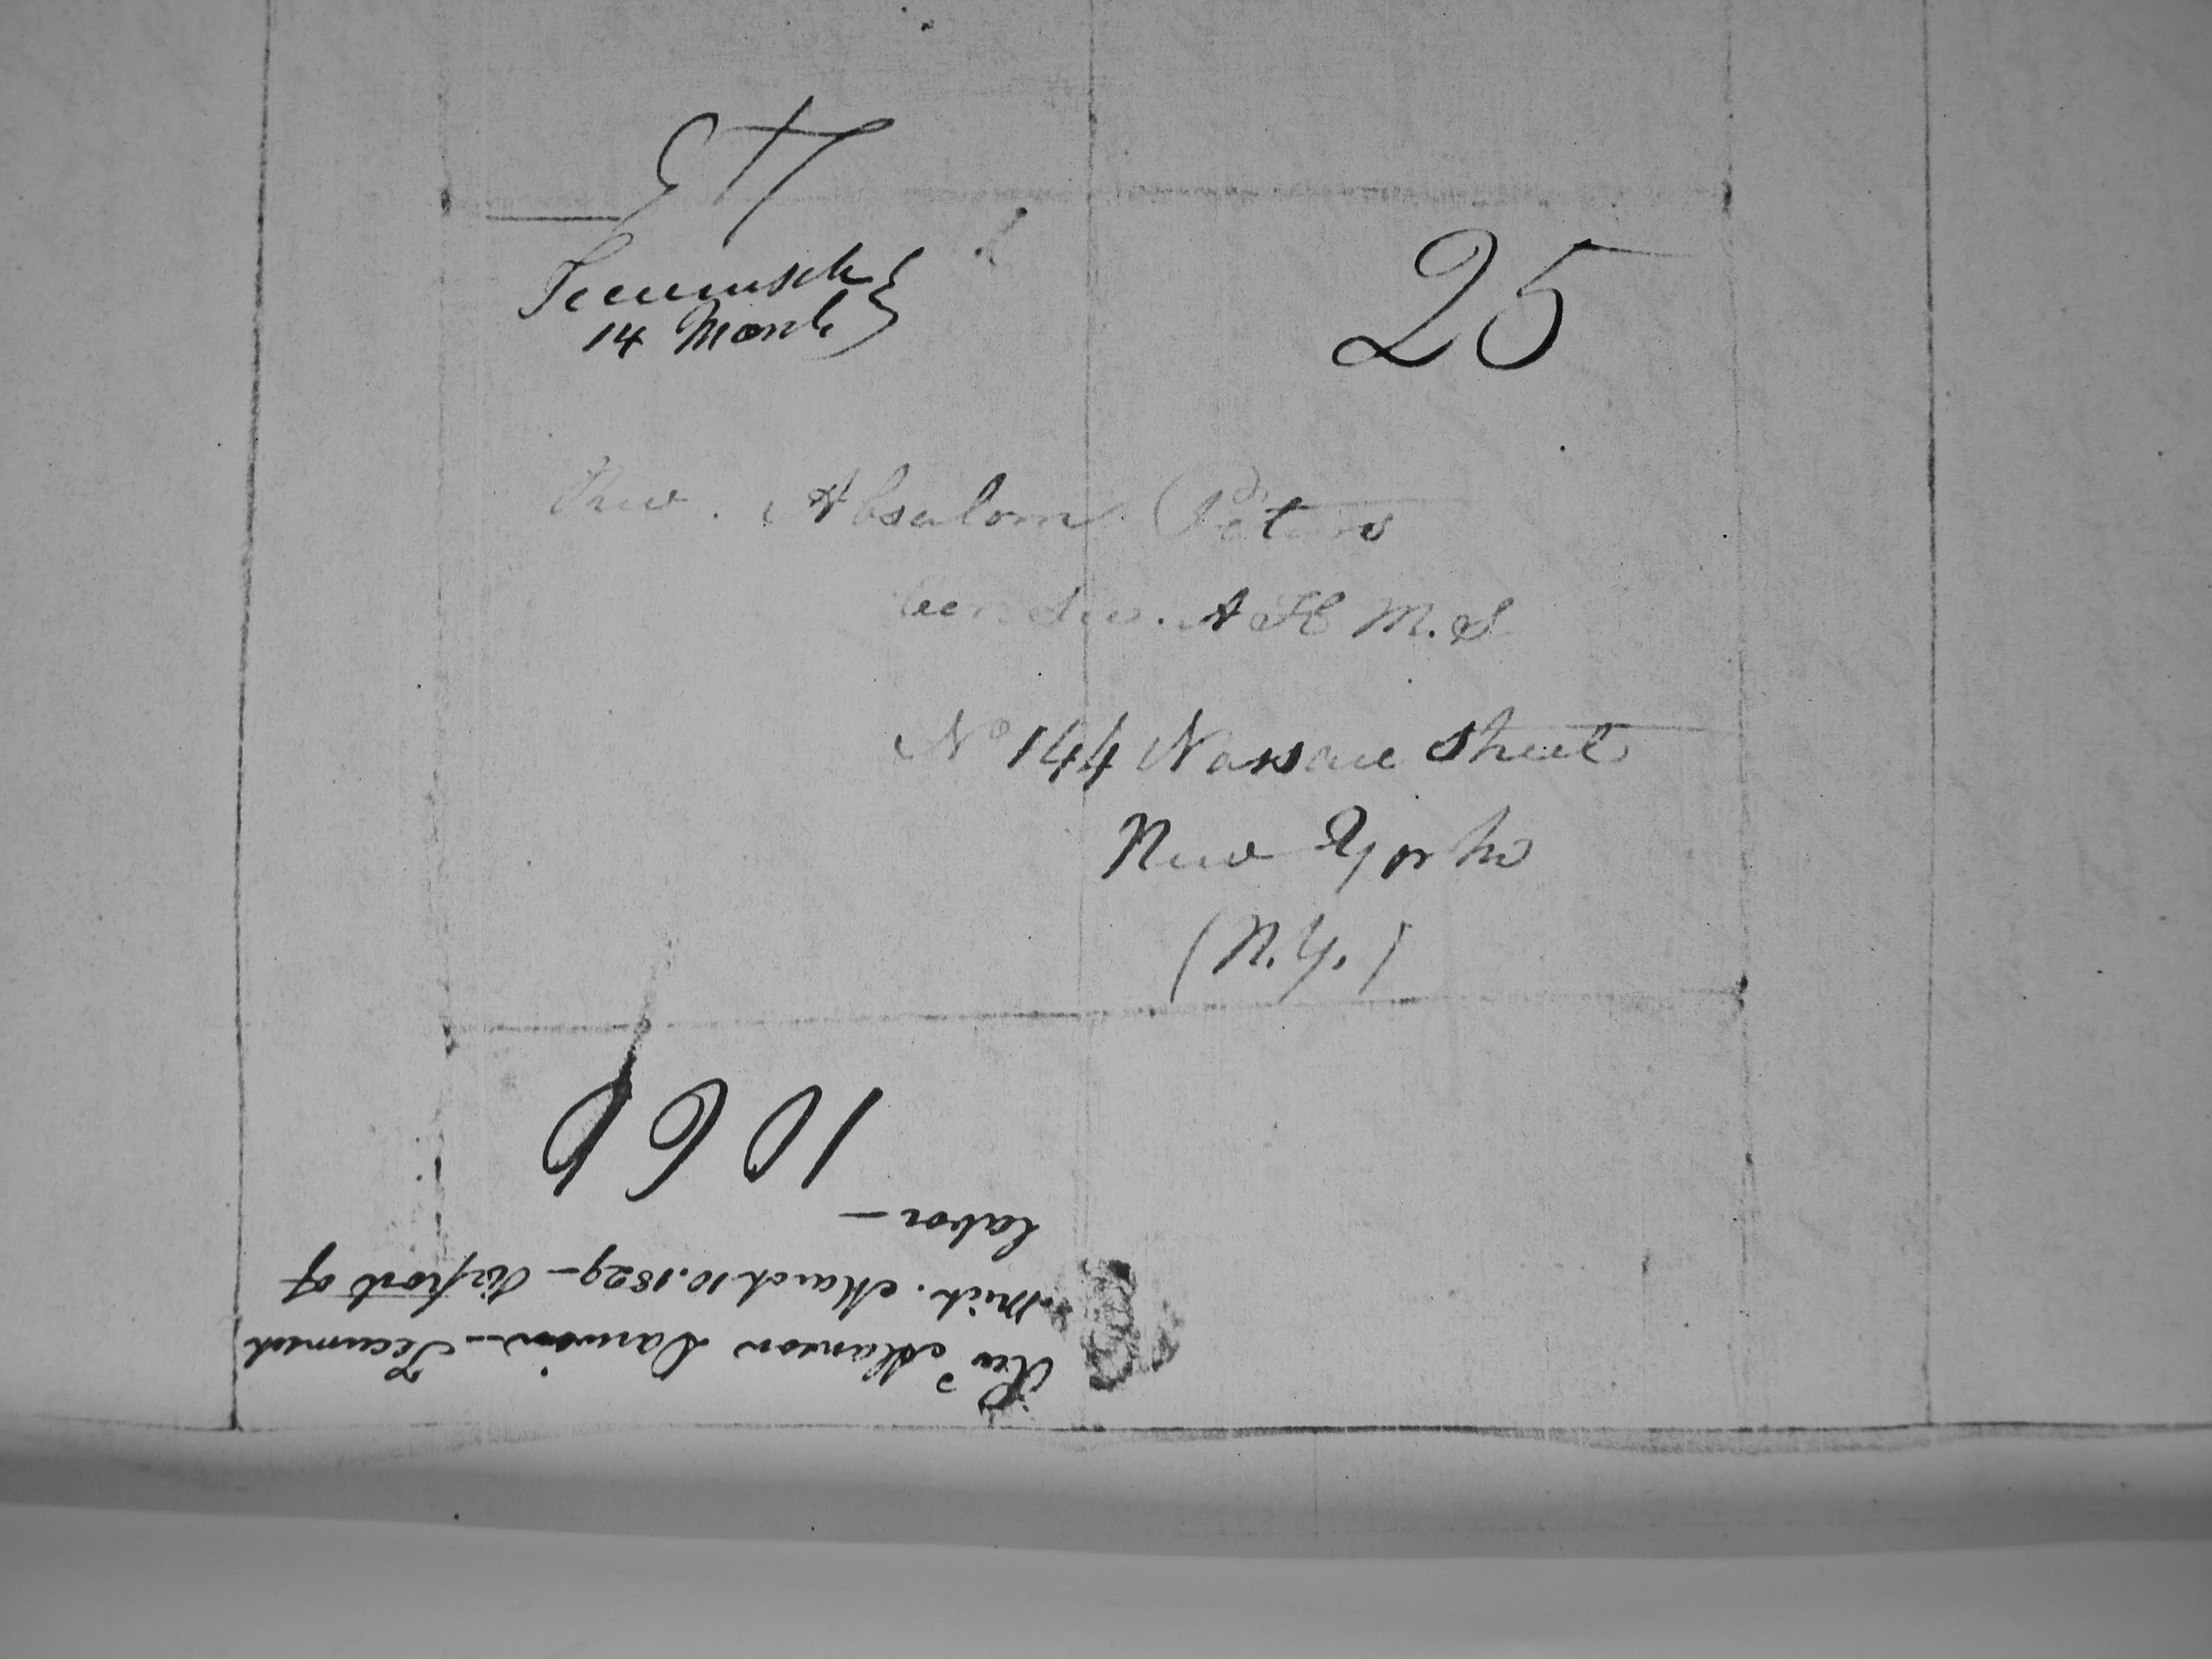 Tecumseh
14 March
25
Rev. Absalom Peters
A H M. S
No 144 Nassau Street
New York
(N.Y.)
1066
Revd Alanson Darwin - Tecumseh
Mich. March 10. 1829 - Report of
labor -